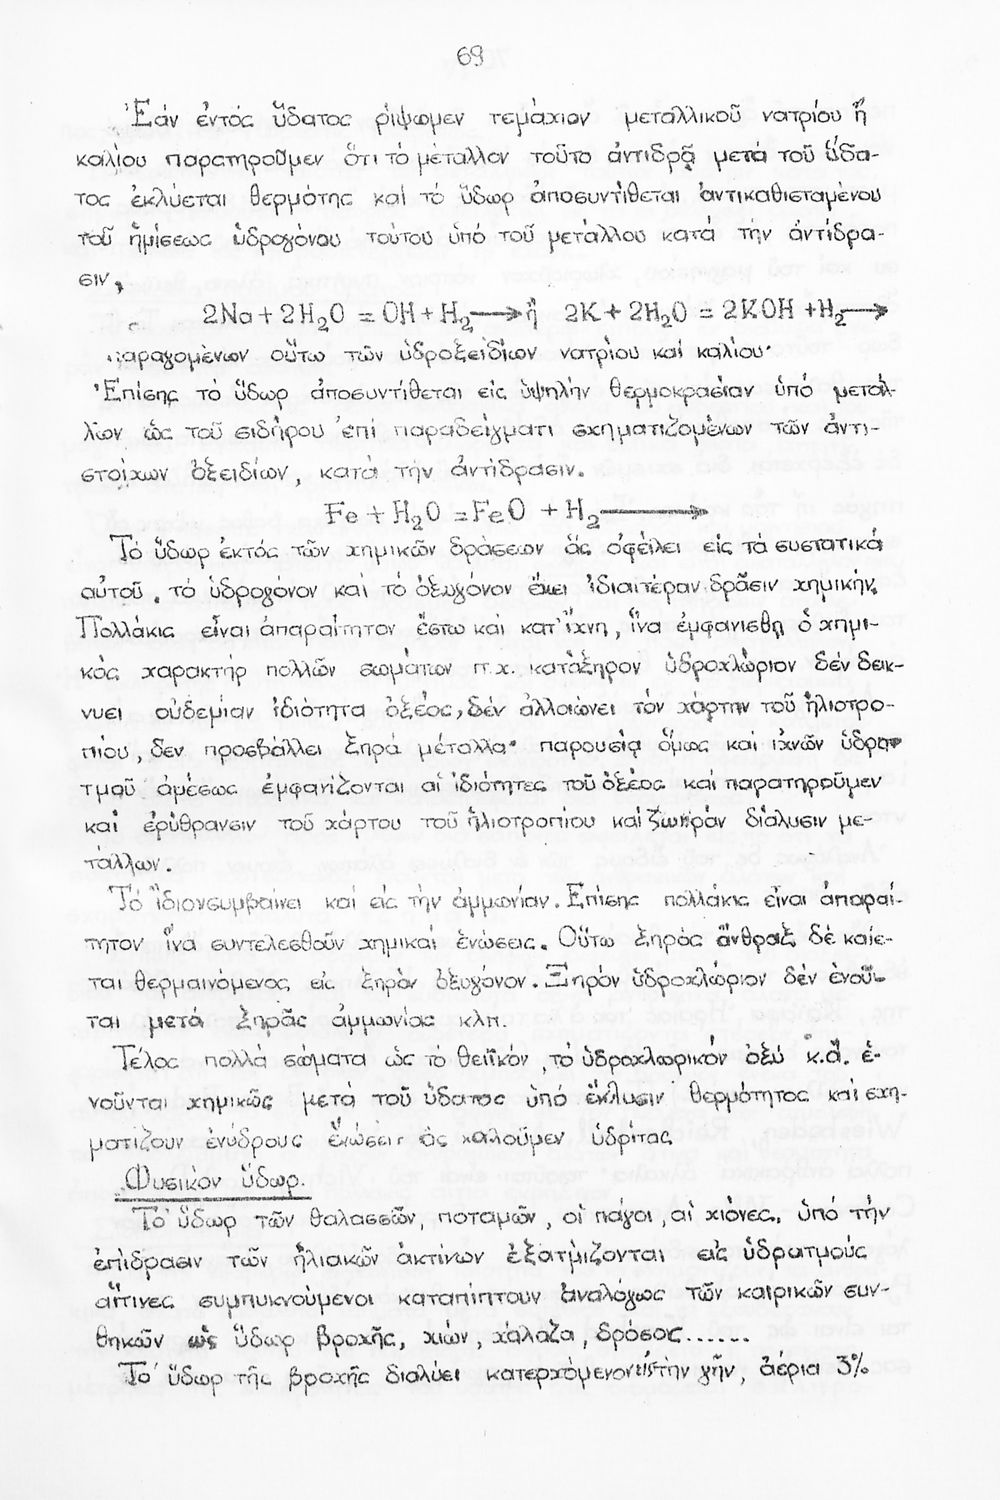 69
Ἐάν ἐντός ὕδατος ρίψωμεν τεμάχιον μεταλλικοῦ νατρίου ἤ
καλίου παρατηροῦμεν ὅτι τό μέταλλον τοῦτο ἀντιδρᾷ μετά τοῦ ὕδα-
τος ἐκλύεται θερμότης καί τό ὕδωρ ἀποσυντίθεται ἀντικαθισταμένου
τοῦ ἡμίσεως ὑδρογόνου τούτου ὑπό τοῦ μετάλλου κατά τήν ἀντίδρα-
σιν,
2Na + 2H₂O = OH + H₂⟶ ἤ 2K + 2H₂O = 2KOH + H₂⟶
παραγομένων οὕτω τῶν ὑδροξειδίων νατρίου καί καλίου·
Ἐπίσης τό ὕδωρ ἀποσυντίθεται εἰς ὑψηλήν θερμοκρασίαν ὑπό μετάλ-
λων ὡς τοῦ σιδήρου ἐπί παραδείγματι σχηματιζομένων τῶν ἀντι-
στοίχων ὀξειδίων, κατά τήν ἀντίδρασιν.
Fe + H₂O = FeO + H₂⟶
Τό ὕδωρ ἐκτός τῶν χημικῶν δράσεων ἅς ὀφείλει εἰς τά συστατικά
αὐτοῦ, τό ὑδρογόνον καί τό ὀξυγόνον ἔχει ἰδιαιτέραν δρᾶσιν χημικήν.
Πολλάκις εἶναι ἀπαραίτητον ἔστω καί κατ' ἴχνη, ἵνα ἐμφανισθῇ ὁ χημι-
κός χαρακτήρ πολλῶν σωμάτων π.χ. κατάξηρον ὑδροχλώριον δέν δεικ-
νυει οὐδεμίαν ἰδιότητα ὀξέος, δέν ἀλλοιώνει τόν χάρτην τοῦ ἡλιοτρο-
πίου, δεν προσβάλλει ξηρά μέταλλα· παρουσίᾳ ὅμως καί ἰχνῶν ὑδρα-
τμοῦ ἀμέσως ἐμφανίζονται αἱ ἰδιότητες τοῦ ὀξέος καί παρατηροῦμεν
καί ἐρύθρανσιν τοῦ χάρτου τοῦ ἡλιοτροπίου καί ζωηράν διάλυσιν με-
τάλλων.
Τό ἴδιον συμβαίνει καί εἰς τήν ἀμμωνίαν. Ἐπίσης πολλάκις εἶναι ἀπαραί-
τητον ἵνα συντελεσθοῦν χημικαί ἑνώσεις. Οὕτω ξηρός ἄνθραξ δέ καίε-
ται θερμαινόμενος εἰς ξηρόν ὀξυγόνον. Ξηρόν ὑδροχλώριον δέν ἑνοῦ-
ται μετά ξηρᾶς ἀμμωνίας κλπ.
Τέλος πολλά σώματα ὡς τό θειϊκόν, τό ὑδροχλωρικόν ὀξύ κ.ἄ. ἑ-
νοῦνται χημικῶς μετά τοῦ ὕδατος ὑπό ἔκλυσιν θερμότητος καί σχη-
ματίζουν ἐνύδρους ἑνώσεις ἅς καλοῦμεν ὑδρίτας
Φυσικόν ὕδωρ.
Τό ὕδωρ τῶν θαλασσῶν, ποταμῶν, οἱ πάγοι, αἱ χιόνες, ὑπό τήν
ἐπίδρασιν τῶν ἡλιακῶν ἀκτίνων ἐξατμίζονται εἰς ὑδρατμούς
οἵτινες συμπυκνούμενοι καταπίπτουν ἀναλόγως τῶν καιρικῶν συν-
θηκῶν ὡς ὕδωρ βροχῆς, χιών, χάλαζα, δρόσος......
Τό ὕδωρ τῆς βροχῆς διαλύει κατερχόμενον εἰς τήν γῆν, ἀέρια 3%